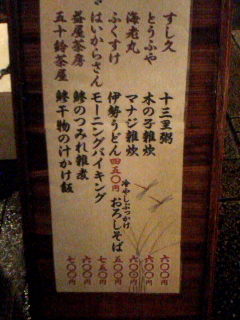 すし久 十三里粥 六〇〇円
とうふや 木の子雑炊 六〇〇円
海老丸 マナジ雑炊 六〇〇円
ふくすけ 伊勢うどん四五〇円 冷やしぶっかけおろしそば 五〇〇円
はいからさん モーニングバイキング 七五〇円
益屋茶房 鯵のつみれ雑煮 六〇〇円
五十鈴茶屋 鯵干物の汁かけ飯 七〇〇円